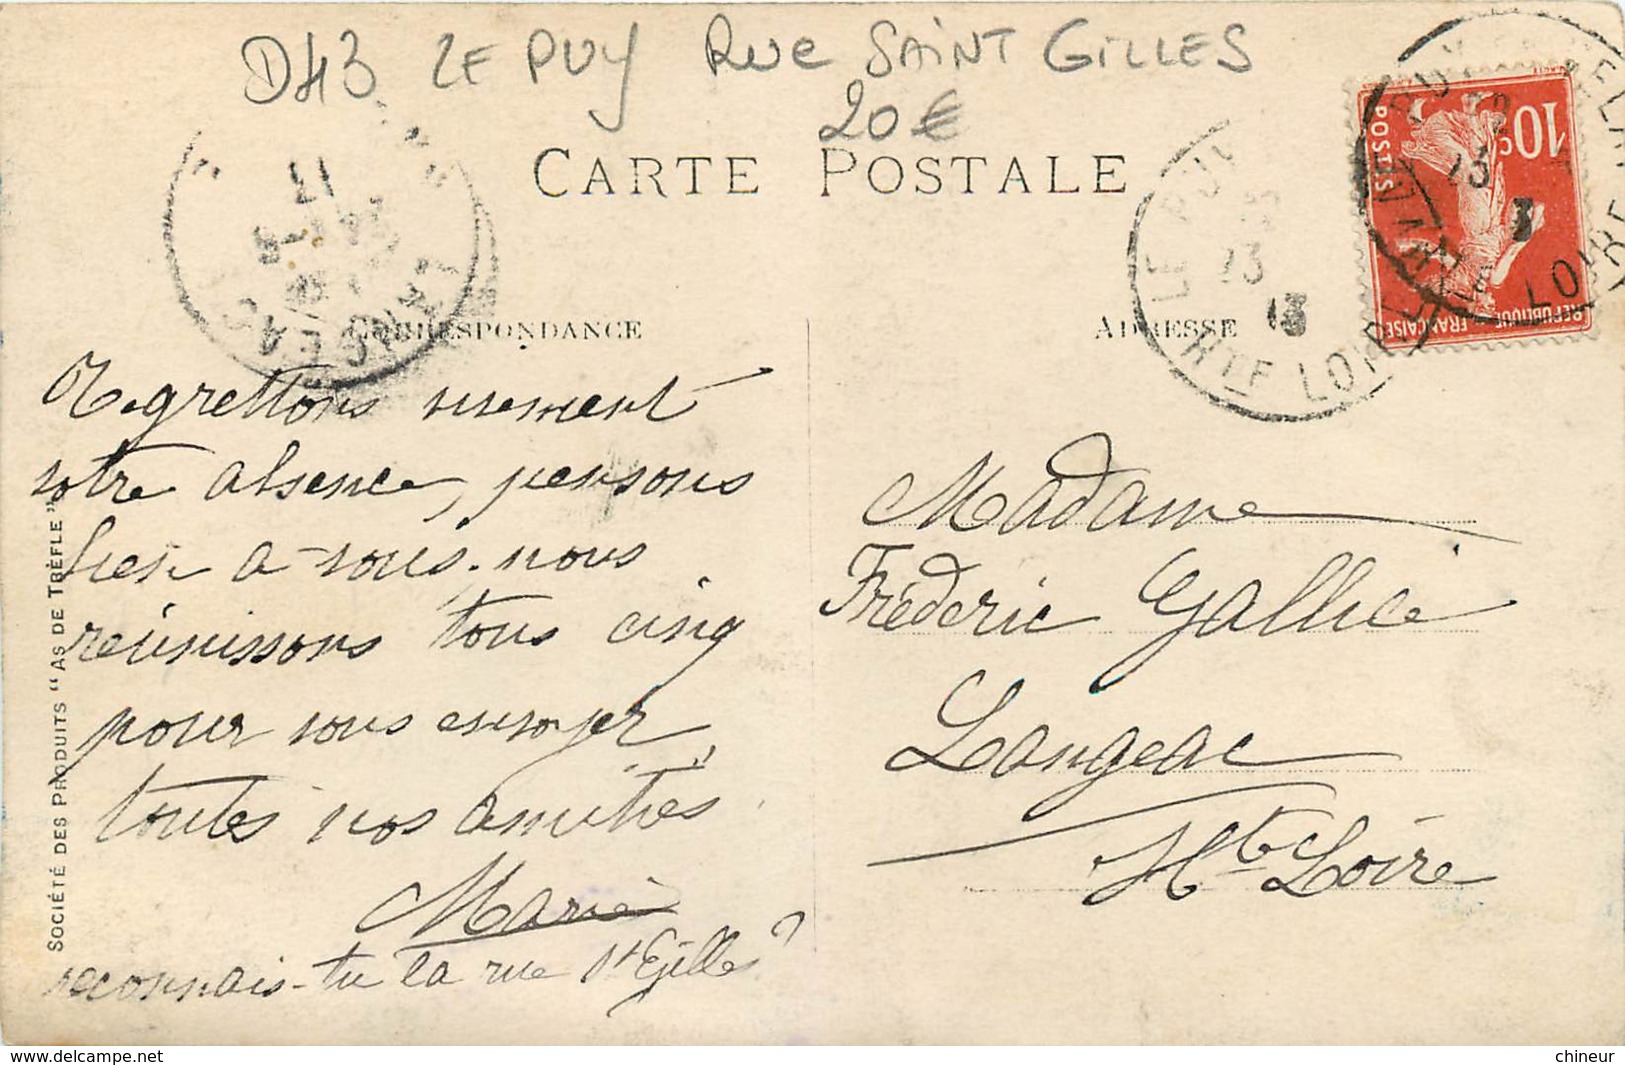 D43 LE PUY RUE SAINT GILLES
20€
CARTE POSTALE
CORRESPONDANCE
ADRESSE
10c
POSTES
REPUBLIQUE FRANÇAISE
LE PUY
13
HTE LOIRE
LANGEAC
Regrettons vivement
votre absence, pensons
bien à vous. nous
réunissons tous cinq
pour vous envoyer,
toutes nos amitiés.
Marie
reconnais-tu la rue St Gilles?
Madame
Fréderic Gallice
Langeac
Hte Loire
SOCIÉTÉ DES PRODUITS "AS DE TRÈFLE"
delcampe.net
chineur